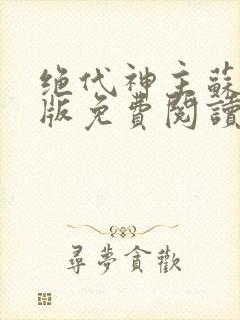 绝代神主蘇
版免費閱讀
尋夢貪歡